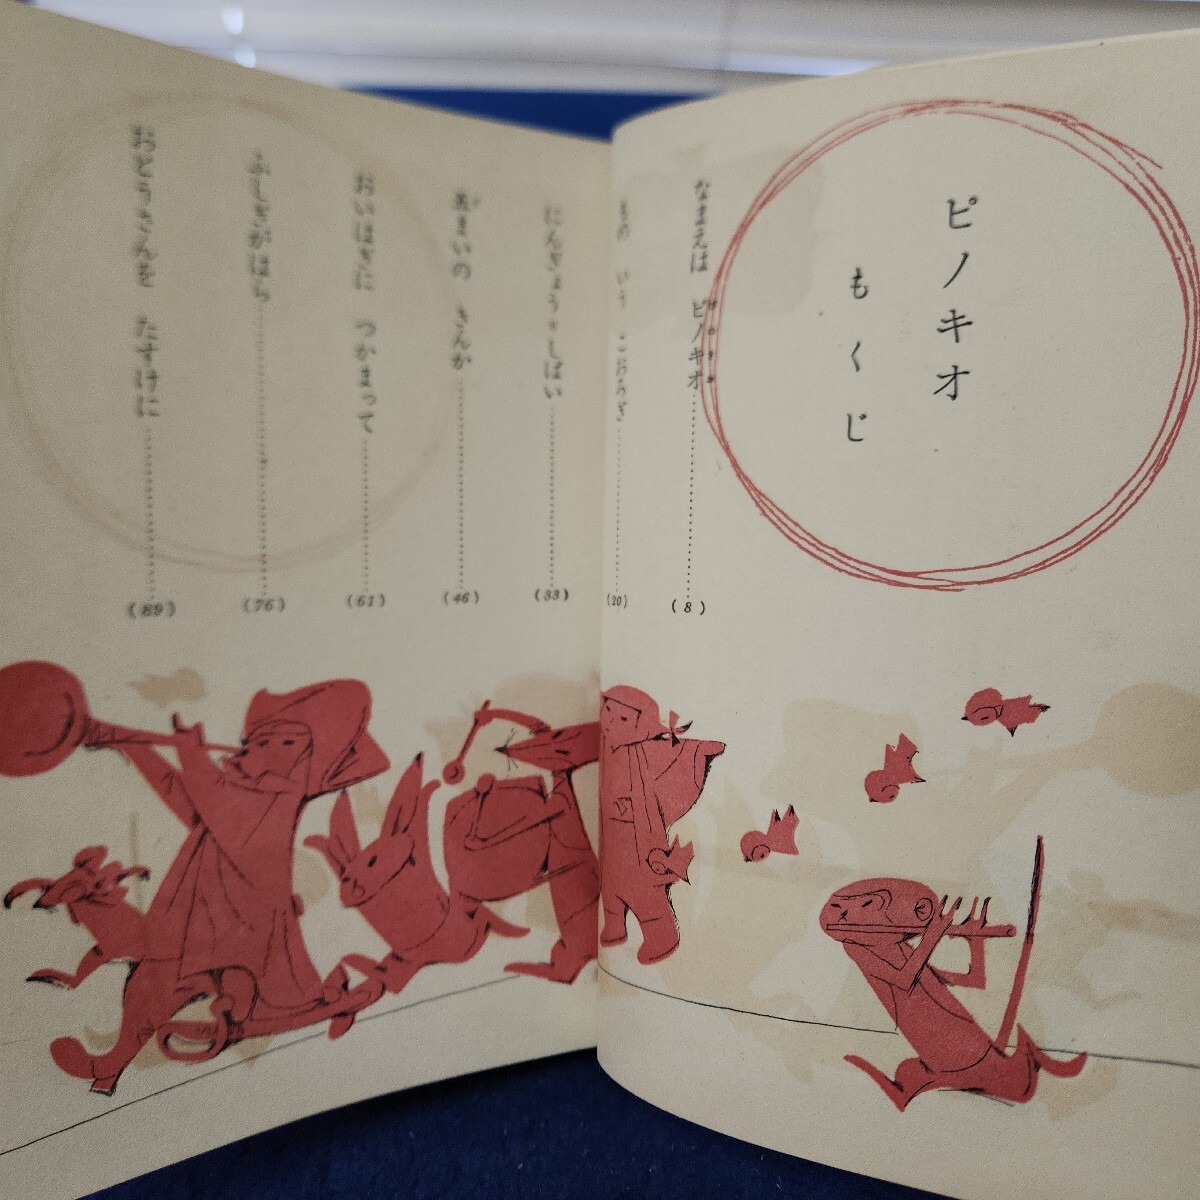 ピノキオ
もくじ
なまえは ピノキオ……(8)
もの いう こおろぎ……(20)
にんぎょうしばい……(33)
五まいの きんか……(46)
おいはぎに つかまって……(61)
ふしぎがはら……(76)
おとうさんを たすけに……(89)